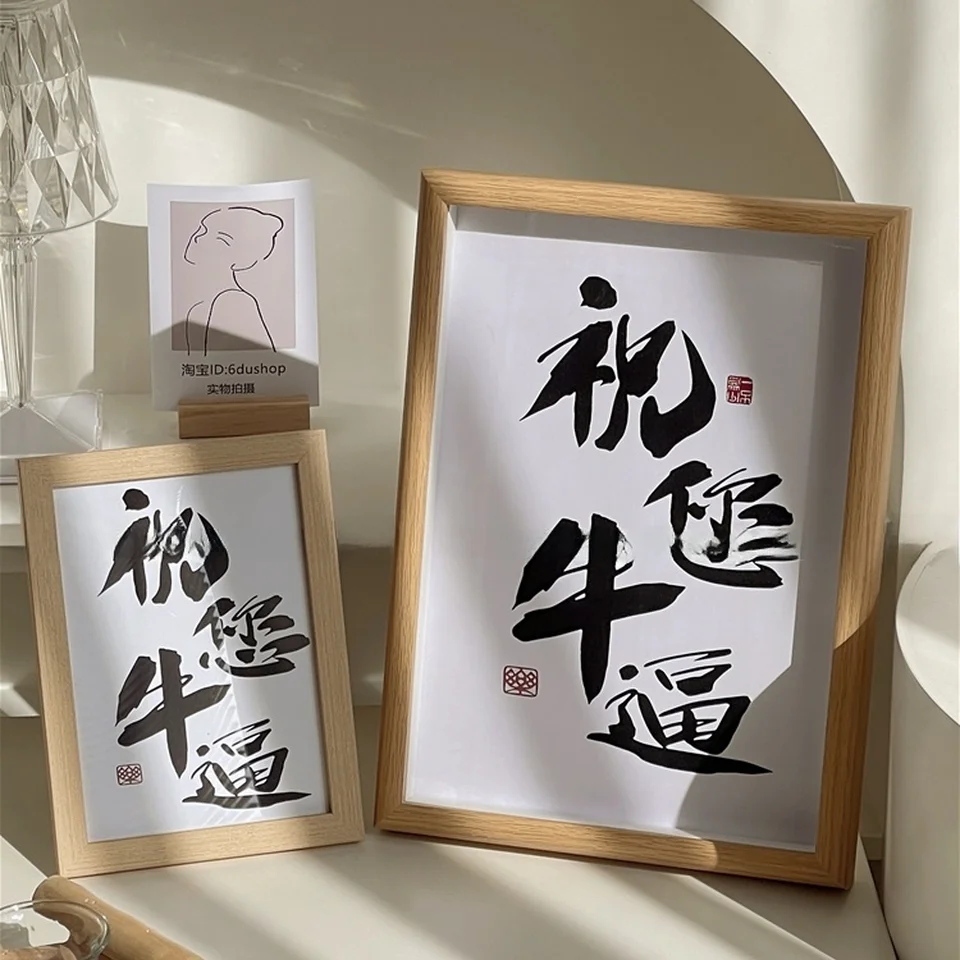 淘宝ID:6dushop
实物拍摄
祝
您
牛
逼
祝
您
牛
逼